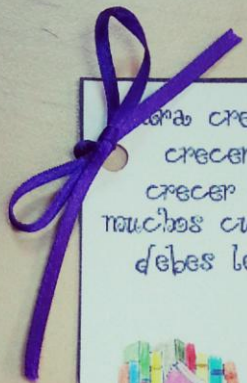 ara cre
crecer
crecer
muchos cu
debes le